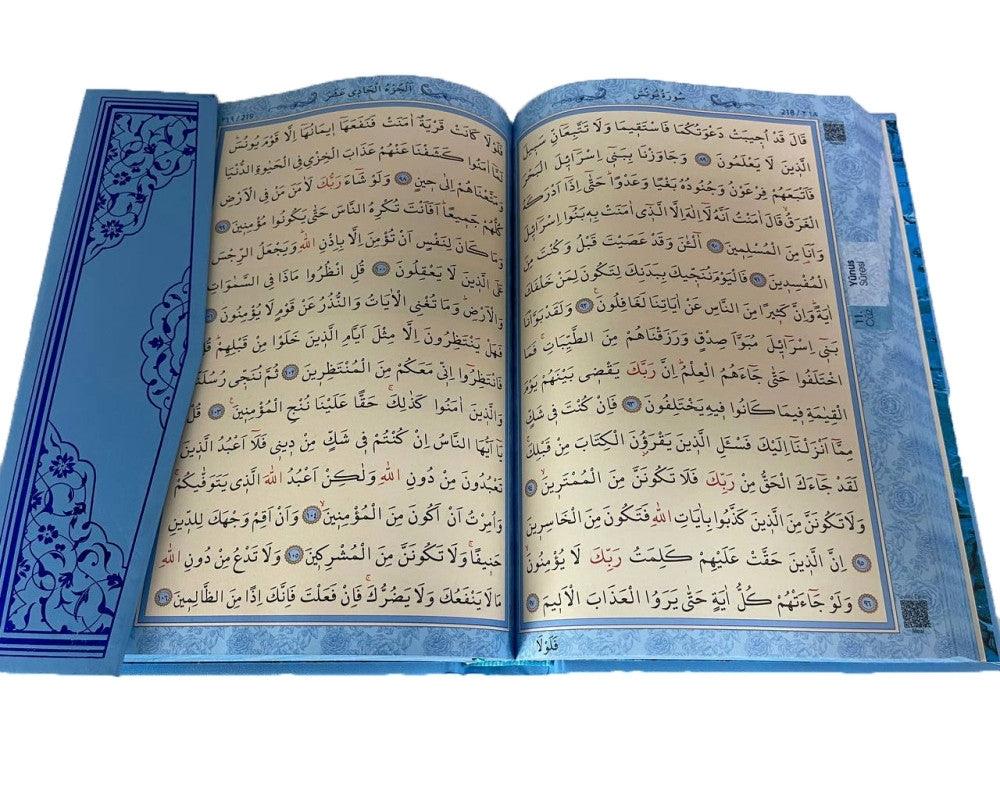 218/٢١٨
سُورَةُ يُونُسَ
قَالَ قَدْ اُجٖيبَتْ دَعْوَتُكُمَا فَاسْتَقٖيمَا وَلَا تَتَّبِعَٓانِّ سَبٖيلَ
الَّذٖينَ لَا يَعْلَمُونَ ﴿٨٩﴾ وَجَاوَزْنَا بِبَنٖٓي اِسْرَٓائٖلَ الْبَحْرَ
فَاَتْبَعَهُمْ فِرْعَوْنُ وَجُنُودُهُ بَغْيًا وَعَدْوًا حَتّٰٓى اِذَٓا اَدْرَكَهُ
الْغَرَقُ قَالَ اٰمَنْتُ اَنَّهُ لَٓا اِلٰهَ اِلَّا الَّذٖٓي اٰمَنَتْ بِهٖ بَنُٓوا اِسْرَٓائٖلَ
وَاَنَا مِنَ الْمُسْلِمٖينَ ﴿٩٠﴾ اٰلْـٰٔنَ وَقَدْ عَصَيْتَ قَبْلُ وَكُنْتَ مِنَ
الْمُفْسِدٖينَ ﴿٩١﴾ فَالْيَوْمَ نُنَجّٖيكَ بِبَدَنِكَ لِتَكُونَ لِمَنْ خَلْفَكَ
اٰيَةً وَاِنَّ كَثٖيرًا مِنَ النَّاسِ عَنْ اٰيَاتِنَا لَغَافِلُونَ ﴿٩٢﴾ وَلَقَدْ بَوَّأْنَا
بَنٖٓي اِسْرَٓائٖلَ مُبَوَّاَ صِدْقٍ وَرَزَقْنَاهُمْ مِنَ الطَّيِّبَاتِ فَمَا
اخْتَلَفُوا حَتّٰى جَٓاءَهُمُ الْعِلْمُ اِنَّ رَبَّكَ يَقْضٖي بَيْنَهُمْ يَوْمَ
الْقِيٰمَةِ فٖيمَا كَانُوا فٖيهِ يَخْتَلِفُونَ ﴿٩٣﴾ فَاِنْ كُنْتَ فٖي شَكٍّ
مِمَّٓا اَنْزَلْنَٓا اِلَيْكَ فَسْـَٔلِ الَّذٖينَ يَقْرَؤُنَ الْكِتَابَ مِنْ قَبْلِكَ
لَقَدْ جَٓاءَكَ الْحَقُّ مِنْ رَبِّكَ فَلَا تَكُونَنَّ مِنَ الْمُمْتَرٖينَ ﴿٩٤﴾
وَلَا تَكُونَنَّ مِنَ الَّذٖينَ كَذَّبُوا بِاٰيَاتِ اللّٰهِ فَتَكُونَ مِنَ الْخَاسِرٖينَ
﴿٩٥﴾ اِنَّ الَّذٖينَ حَقَّتْ عَلَيْهِمْ كَلِمَتُ رَبِّكَ لَا يُؤْمِنُونَ
﴿٩٦﴾ وَلَوْ جَٓاءَتْهُمْ كُلُّ اٰيَةٍ حَتّٰى يَرَوُا الْعَذَابَ الْاَلٖيمَ ﴿٩٧﴾
فَلَوْلَا
Yûnus
Sûresi
11.
Cüz
اَلْجُزْءُ الْحَادٖي عَشَرَ
٢١٩/219
فَلَوْلَا كَانَتْ قَرْيَةٌ اٰمَنَتْ فَنَفَعَهَٓا اٖيمَانُهَٓا اِلَّا قَوْمَ يُونُسَ
لَمَّٓا اٰمَنُوا كَشَفْنَا عَنْهُمْ عَذَابَ الْخِزْيِ فِي الْحَيٰوةِ الدُّنْيَا
وَمَتَّعْنَاهُمْ اِلٰى حٖينٍ ﴿٩٨﴾ وَلَوْ شَٓاءَ رَبُّكَ لَاٰمَنَ مَنْ فِي الْاَرْضِ
كُلُّهُمْ جَمٖيعًا اَفَاَنْتَ تُكْرِهُ النَّاسَ حَتّٰى يَكُونُوا مُؤْمِنٖينَ ﴿٩٩﴾
وَمَا كَانَ لِنَفْسٍ اَنْ تُؤْمِنَ اِلَّا بِاِذْنِ اللّٰهِ وَيَجْعَلُ الرِّجْسَ
عَلَى الَّذٖينَ لَا يَعْقِلُونَ ﴿١٠٠﴾ قُلِ انْظُرُوا مَاذَا فِي السَّمٰوَاتِ
وَالْاَرْضِ وَمَا تُغْنِي الْاٰيَاتُ وَالنُّذُرُ عَنْ قَوْمٍ لَا يُؤْمِنُونَ
فَهَلْ يَنْتَظِرُونَ اِلَّا مِثْلَ اَيَّامِ الَّذٖينَ خَلَوْا مِنْ قَبْلِهِمْ قُلْ
فَانْتَظِرُٓوا اِنّٖي مَعَكُمْ مِنَ الْمُنْتَظِرٖينَ ﴿١٠٢﴾ ثُمَّ نُنَجّٖي رُسُلَنَا
وَالَّذٖينَ اٰمَنُوا كَذٰلِكَ حَقًّا عَلَيْنَا نُنْجِ الْمُؤْمِنٖينَ ﴿١٠٣﴾ قُلْ
يَٓا اَيُّهَا النَّاسُ اِنْ كُنْتُمْ فٖي شَكٍّ مِنْ دٖينٖي فَلَٓا اَعْبُدُ الَّذٖينَ
تَعْبُدُونَ مِنْ دُونِ اللّٰهِ وَلٰكِنْ اَعْبُدُ اللّٰهَ الَّذٖي يَتَوَفّٰيكُمْ
وَاُمِرْتُ اَنْ اَكُونَ مِنَ الْمُؤْمِنٖينَ ﴿١٠٤﴾ وَاَنْ اَقِمْ وَجْهَكَ لِلدّٖينِ
حَنٖيفًا وَلَا تَكُونَنَّ مِنَ الْمُشْرِكٖينَ ﴿١٠٥﴾ وَلَا تَدْعُ مِنْ دُونِ اللّٰهِ
مَا لَا يَنْفَعُكَ وَلَا يَضُرُّكَ فَاِنْ فَعَلْتَ فَاِنَّكَ اِذًا مِنَ الظَّالِمٖينَ ﴿١٠٦﴾